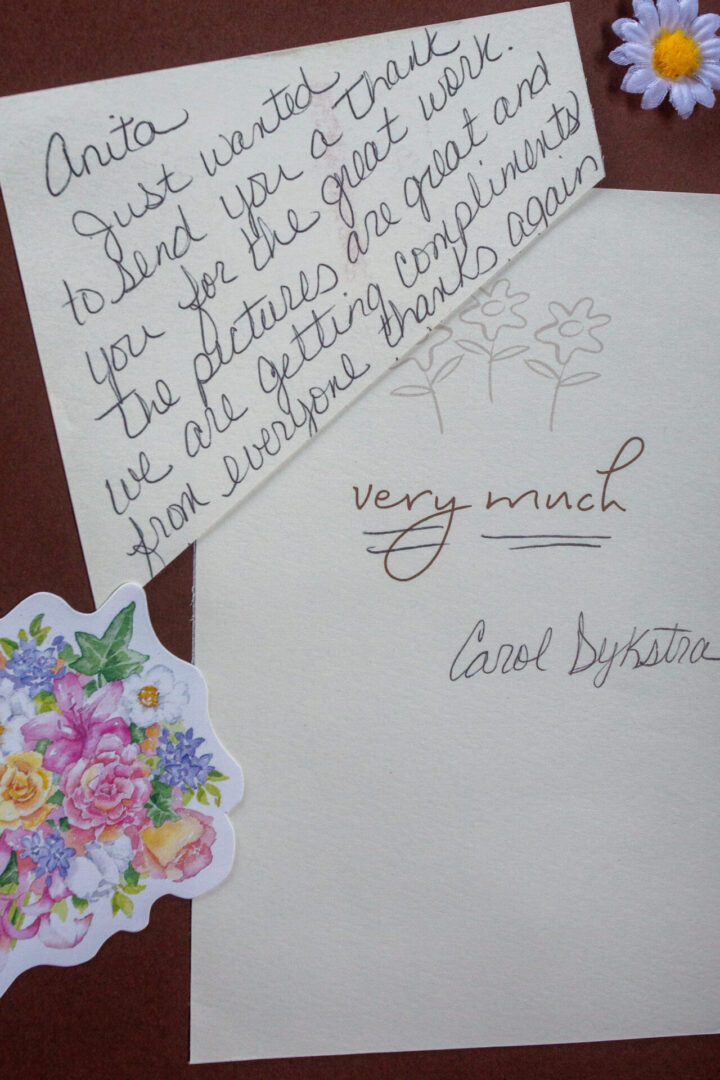 Anita
Just wanted
to send you a thank
you for the great work.
the pictures are great and
we are getting compliments
from everyone thanks again
very much
Carol Dykstra